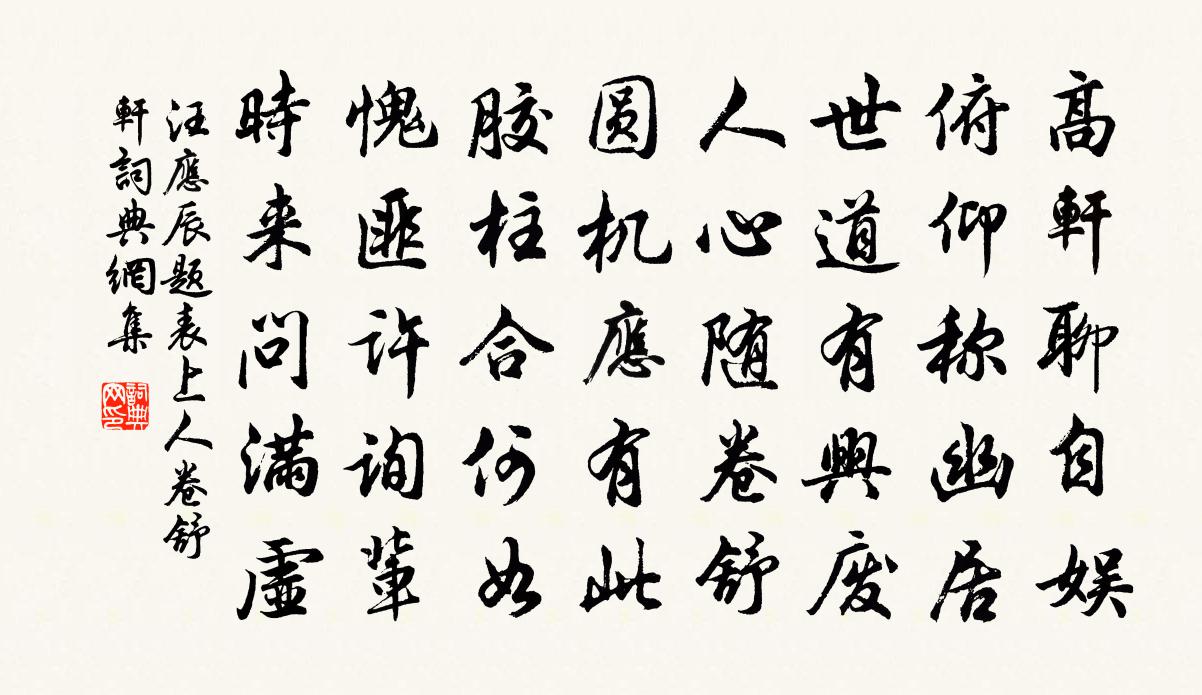 髙軒聊自娱
俯仰称幽居
世道有興废
人心随卷舒
圆机應有此
胶柱合何如
愧匪许询輩
時来问满虚
汪應辰题表上人卷舒
軒詞典網集
詞典网印